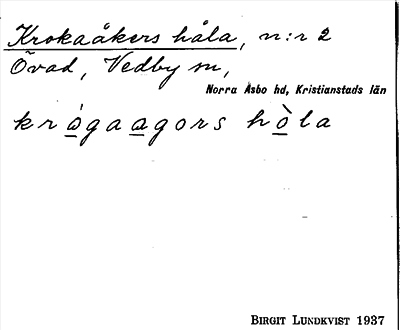 Krokaåkers håla, n:r 2
Övad, Vedby sn,
Norra Åsbo hd, Kristianstads län
kràgaagors hòla
BIRGIT LUNDKVIST 1937